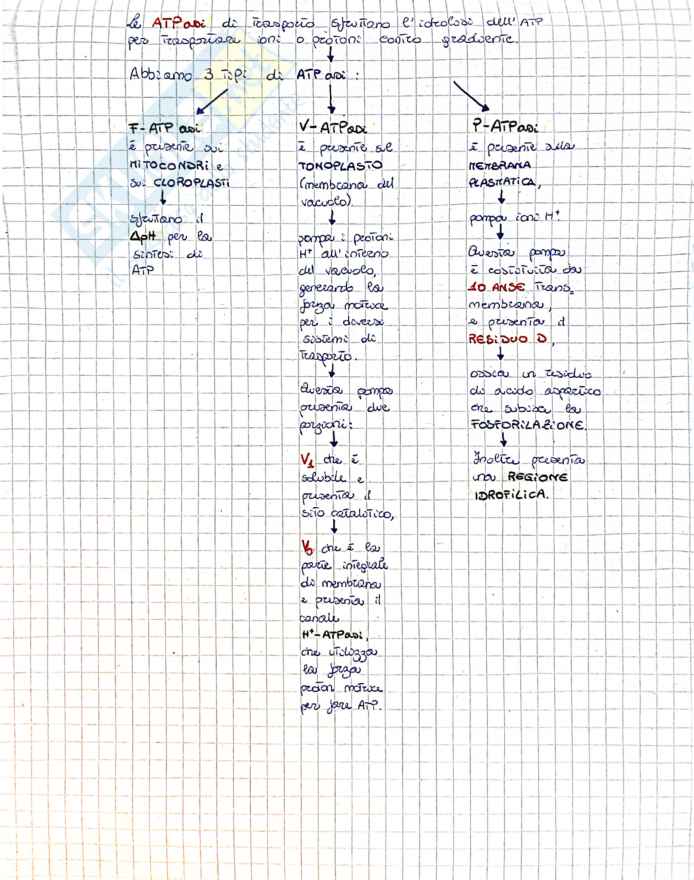 Le ATPasi di trasporto sfruttano l'idrolosi dell'ATP
per trasportare ioni o protoni contro gradiente.
Abbiamo 3 Tipi di ATPasi:
F-ATPasi
è presente sui
MITOCONDRI e
sui CLOROPLASTI
sfruttano il
ΔpH per la
sintesi di
ATP
V-ATPasi
è presente sul
TONOPLASTO
(membrana del
vacuolo)
pompa i protoni
H⁺ all'interno
del vacuolo,
generando la
forza motrice
per i diversi
sistemi di
trasporto.
Questa pompa
presenta due
porzioni:
V₁ che è
solubile e
presenta il
sito catalitico,
V₀ che è la
parte integrale
di membrana
e presenta il
canale
H⁺-ATPasi,
che utilizza
la forza
proton motrice
per fare ATP.
P-ATPasi
è presente sulla
MEMBRANA
PLASMATICA,
pompa ioni H⁺.
Questa pompa
è costituita da
10 ANSE Trans.
membrana,
e presenta il
RESIDUO D,
ossia un residuo
di acido aspartico
che subisce la
FOSFORILAZIONE.
Inoltre presenta
una REGIONE
IDROFILICA.